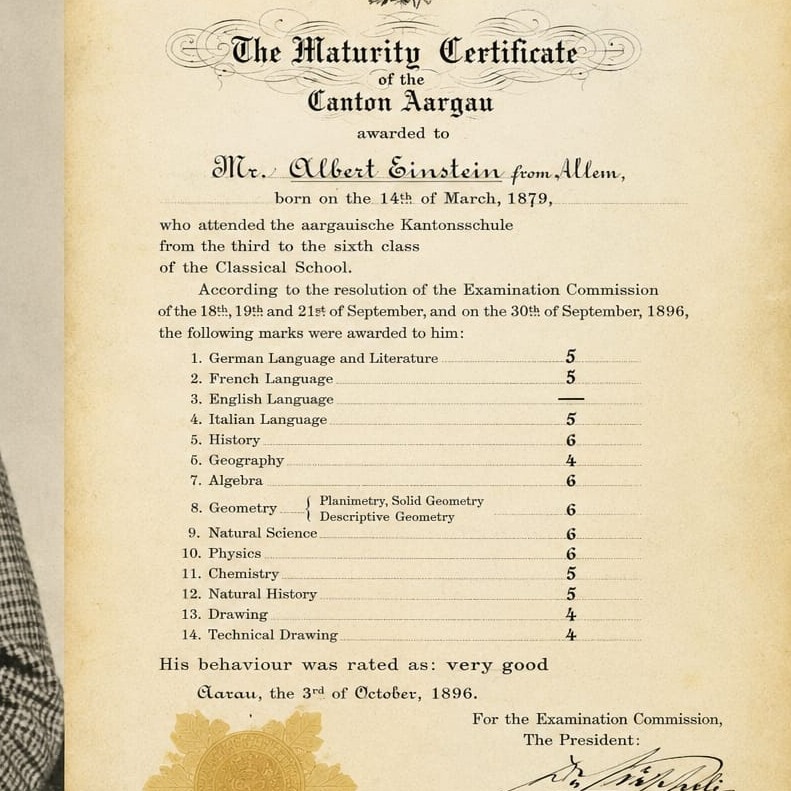 The Maturity Certificate
of the
Canton Aargau
awarded to
Mr. Albert Einstein from Allem,
born on the 14th of March, 1879,
who attended the aargauische Kantonsschule
from the third to the sixth class
of the Classical School.
According to the resolution of the Examination Commission
of the 18th, 19th and 21st of September, and on the 30th of September, 1896,
the following marks were awarded to him:
1. German Language and Literature 5
2. French Language 5
3. English Language —
4. Italian Language 5
5. History 6
6. Geography 4
7. Algebra 6
8. Geometry { Planimetry, Solid Geometry
Descriptive Geometry 6
9. Natural Science 6
10. Physics 6
11. Chemistry 5
12. Natural History 5
13. Drawing 4
14. Technical Drawing 4
His behaviour was rated as: very good
Aarau, the 3rd of October, 1896.
For the Examination Commission,
The President: